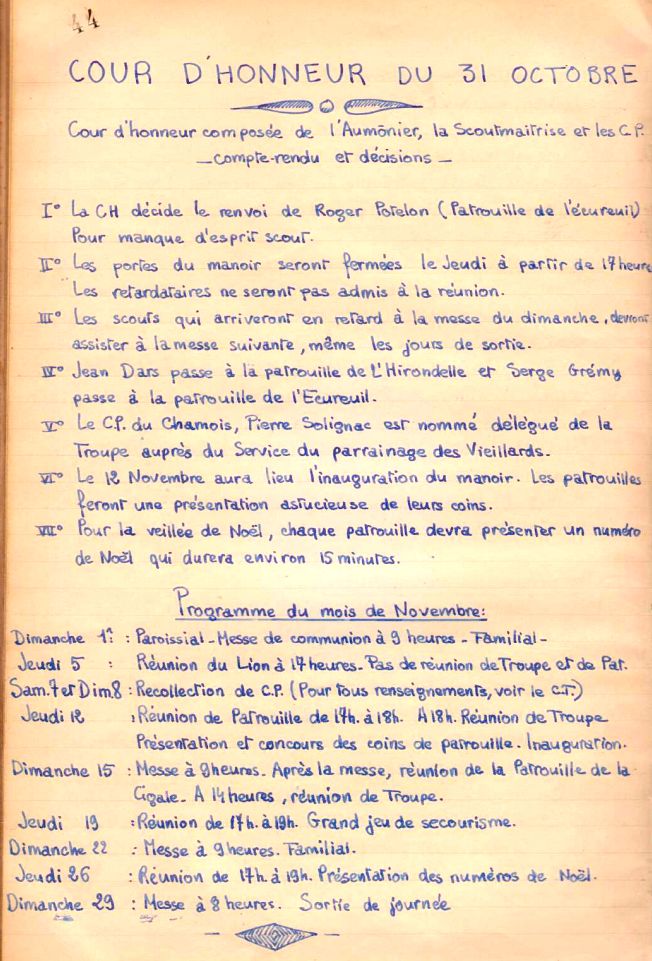 44
COUR D'HONNEUR DU 31 OCTOBRE
Cour d'honneur composée de l'Aumônier, la Scoutmaitrise et les C.P.
_compte-rendu et décisions_
I° La CH décide le renvoi de Roger Potelon (Patrouille de l'écureuil)
Pour manque d'esprit scout.
II° Les portes du manoir seront fermées le Jeudi à partir de 17 heure
Les retardataires ne seront pas admis à la réunion.
III° Les scouts qui arriveront en retard à la messe du dimanche, devront
assister à la messe suivante, même les jours de sortie.
IV° Jean Dars passe à la patrouille de L'Hirondelle et Serge Grémy
passe à la patrouille de l'Ecureuil.
V° Le C.P. du Chamois, Pierre Solignac est nommé délégué de la
Troupe auprès du Service du parrainage des Vieillards.
VI° Le 12 Novembre aura lieu l'inauguration du manoir. Les patrouilles
feront une présentation astucieuse de leurs coins.
VII° Pour la veillée de Noël, chaque patrouille devra présenter un numéro
de Noël qui durera environ 15 minutes.
Programme du mois de Novembre:
Dimanche 1er : Paroissial - Messe de communion à 9 heures - Familial -
Jeudi 5 : Réunion du Lion à 17 heures. Pas de réunion de Troupe et de Pat.
Sam. 7 et Dim 8 : Recollection de C.P. (Pour tous renseignements, voir le C.T.)
Jeudi 12 : Réunion de Patrouille de 17h. à 18h. A 18h. Réunion de Troupe
Présentation et concours des coins de patrouille. Inauguration.
Dimanche 15 : Messe à 9 heures. Après la messe, réunion de la Patrouille de la
Cigale. A 14 heures, réunion de Troupe.
Jeudi 19 : Réunion de 17h. à 19h. Grand jeu de secourisme.
Dimanche 22 : Messe à 9 heures. Familial.
Jeudi 26 : Réunion de 17h. à 19h. Présentation des numéros de Noël.
Dimanche 29 : Messe à 8 heures. Sortie de journée